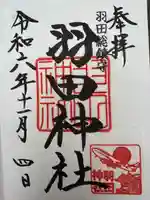 奉拝
羽田総鎮守
羽田神社
令和六年十一月四日